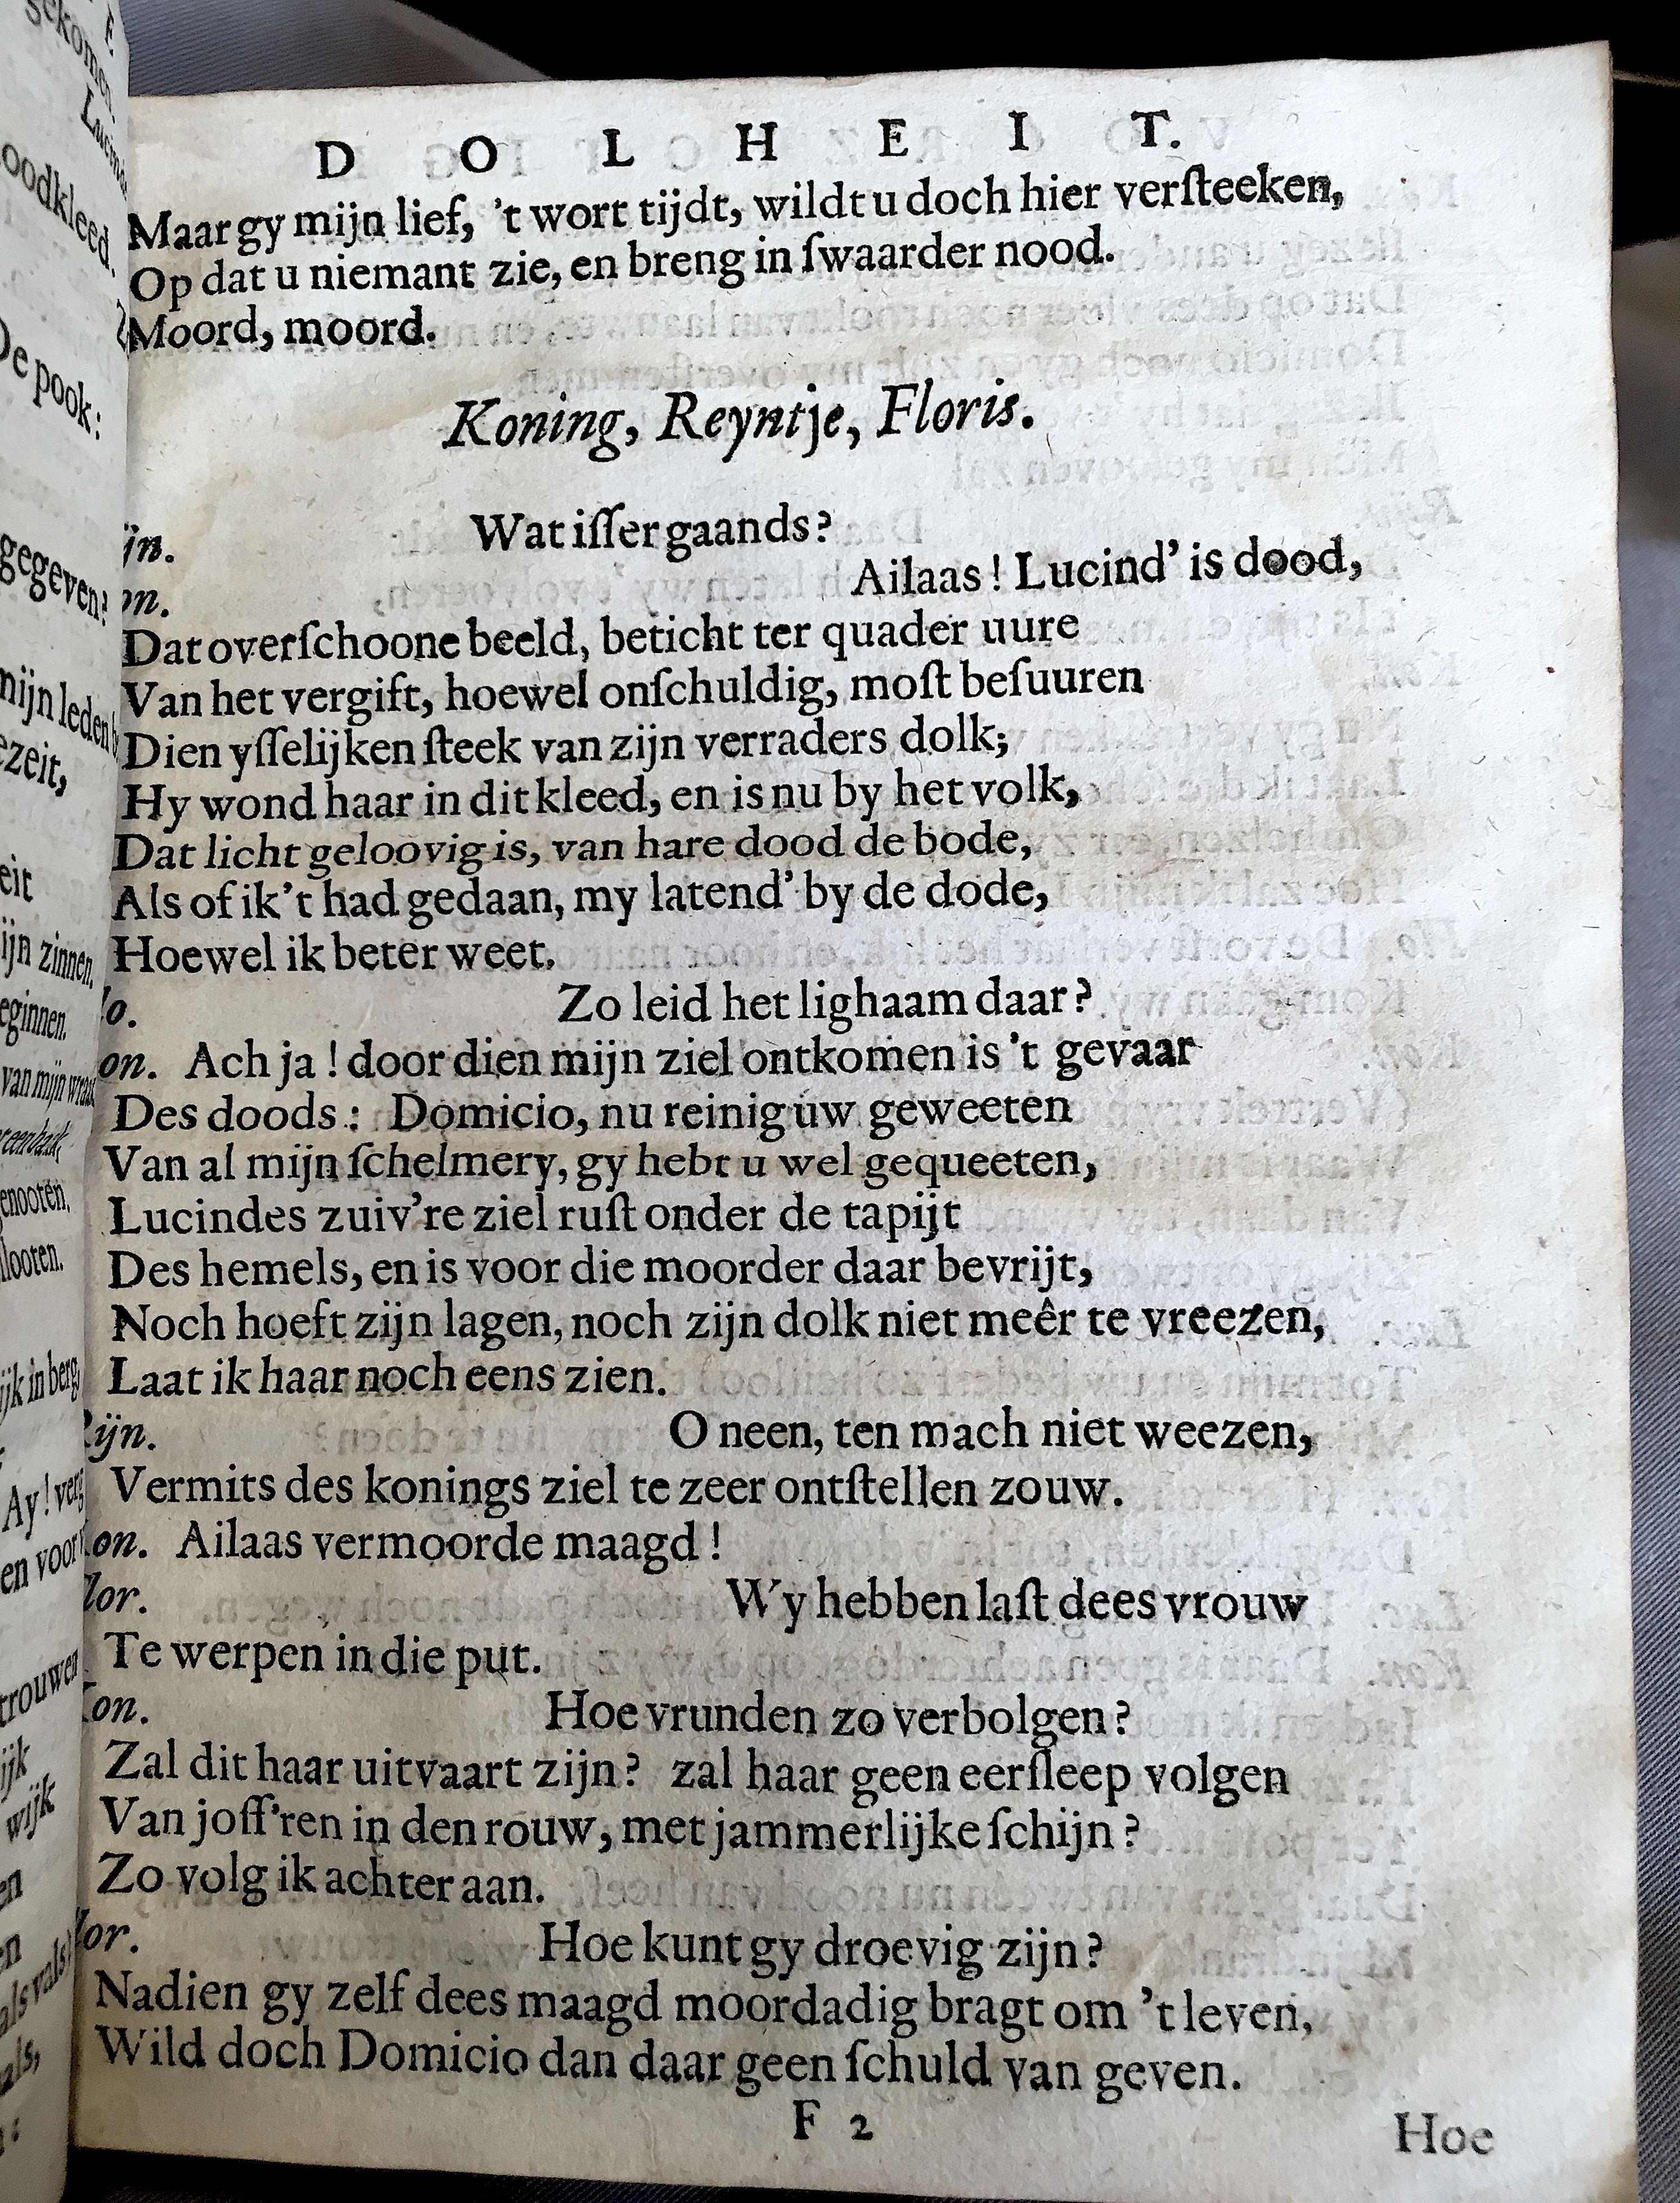 D O L H E I T.
Maar gy mijn lief, 't wort tijdt, wildt u doch hier verſteeken,
Op dat u niemant zie, en breng in ſwaarder nood.
Moord, moord.
Koning, Reyntje, Floris.
ijn. Wat iſſer gaands?
on. Ailaas! Lucind' is dood,
Dat overſchoone beeld, beticht ter quader uure
Van het vergift, hoewel onſchuldig, moſt beſuuren
Dien yſſelijken ſteek van zijn verraders dolk;
Hy wond haar in dit kleed, en is nu by het volk,
Dat licht geloovig is, van hare dood de bode,
Als of ik 't had gedaan, my latend' by de dode,
Hoewel ik beter weet.
lo. Zo leid het lighaam daar?
on. Ach ja! door dien mijn ziel ontkomen is 't gevaar
Des doods: Domicio, nu reinig uw geweeten
Van al mijn ſchelmery, gy hebt u wel gequeeten,
Lucindes zuiv're ziel ruſt onder de tapijt
Des hemels, en is voor die moorder daar bevrijt,
Noch hoeft zijn lagen, noch zijn dolk niet meêr te vreezen,
Laat ik haar noch eens zien.
Rijn. O neen, ten mach niet weezen,
Vermits des konings ziel te zeer ontſtellen zouw.
Kon. Ailaas vermoorde maagd!
Flor. Wy hebben laſt dees vrouw
Te werpen in die put.
Kon. Hoe vrunden zo verbolgen?
Zal dit haar uitvaart zijn? zal haar geen eerſleep volgen
Van joff'ren in den rouw, met jammerlijke ſchijn?
Zo volg ik achter aan.
lor. Hoe kunt gy droevig zijn?
Nadien gy zelf dees maagd moordadig bragt om 't leven,
Wild doch Domicio dan daar geen ſchuld van geven.
F 2
Hoe